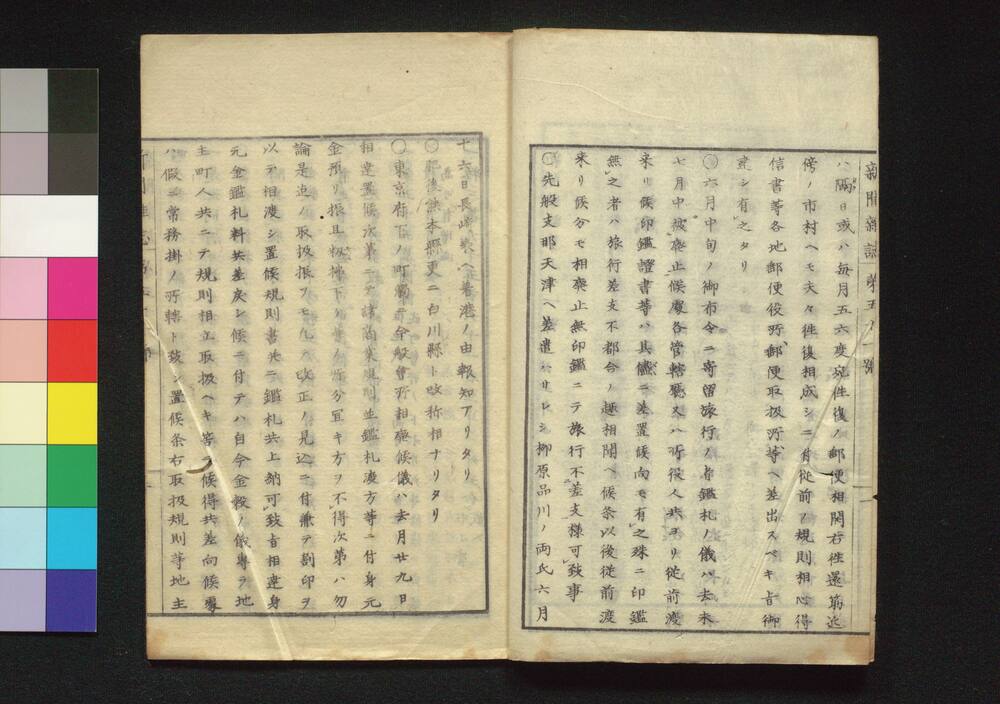 新聞雜誌 第五
ハ隔日或ハ毎月五六度宛往復ノ郵便相開右往還筋近
傍ノ市村ヘモ夫々往復相成シニ付從前ノ規則相心得
信書等各地郵便役所郵便取扱所等ヘ差出スヘキ旨御
達シ有之タリ
〇六月中旬ノ御布令ニ寄留旅行ノ者鑑札ノ儀ハ去未
七月中被廢止候處各管轄廳又ハ所役人共ヨリ從前渡
來リ候印鑑證書等ハ其儘ニ差置候向モ有之殊ニ印鑑
無之者ハ旅行差支不都合ノ趣相聞ヘ候条以後從前渡
來リ候分モ相廢止無印鑑ニテ旅行不差支様可致事
〇先般支那天津ヘ差遣ハサレシ柳原品川ノ両氏六月
十六日長崎縣ヘ着港ノ由報知アリタリ
〇肥後熊本縣更ニ白川縣ト改称相ナリタリ
〇東京府下ノ町觸ニ今般會所相廢候儀ハ去月廿九日
相達置候次第ニテ諸商業規則並鑑札渡方等ニ付身元
金預リ振且扨掃下リ等ノ所分宜キ方ヲ不得次第ハ勿
論是迄ノ取扱振ヲモ改正ノ見込ニ付兼テ割印ヲ
以テ相渡シ置候規則書共ニ鑑札共上納可致旨相達身
元金鑑札料共差戻シ候ニ付テハ自今金穀ノ儀專ラ地
主町人共ニテ規則相立取扱ヘキ筈ヲ候得共差向候處
ハ假ニ常務掛ノ所轄ト致シ置候条右取扱規則等地主